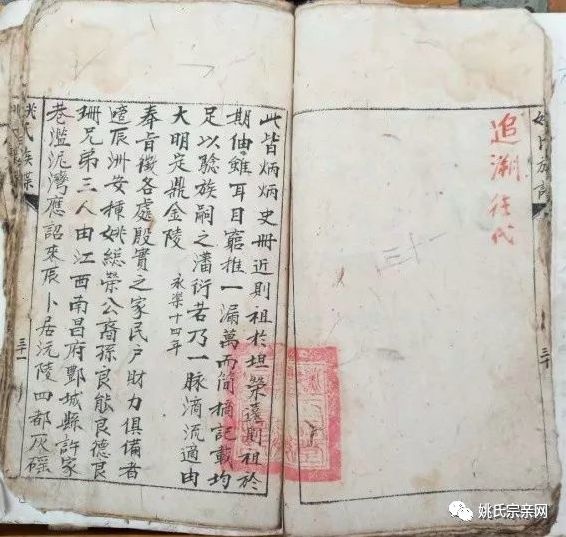 三十
追溯往代
三十一
此皆炳炳史冊近則祖於坦榮遠則祖於
期伷雖耳目窮推一漏萬而簡摘記載均
足以騐族嗣之瀋衍者乃一脉滴流適由
大明定鼎金陵 永樂十四年
奉旨徵各處殷實之家民戶財力俱備者
遷辰洲安插姚總榮公裔孫良能良德良
珊兄弟三人由江西南昌府酆城縣許家
巷濫泥灣應詔來辰卜居沅陵四都灰磘
姚氏族譜
三十一
姚氏宗亲网